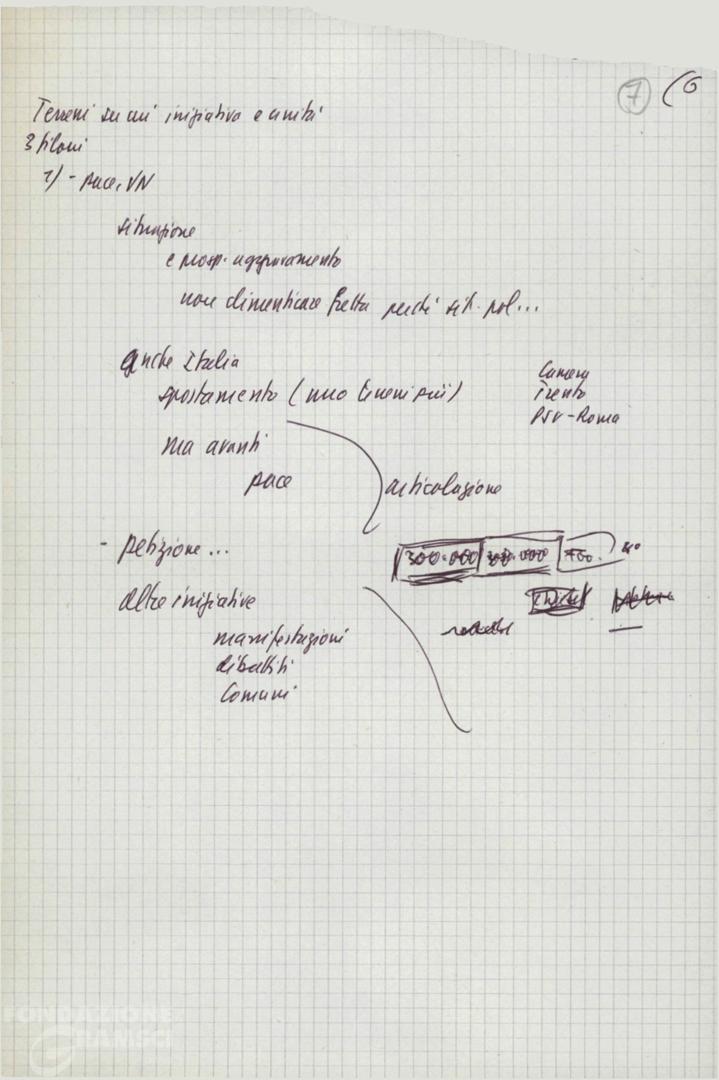 7 (6
Terreni su cui iniziativa e unità
3 filoni
1) - pace, VN
situazione
e prosp. aggravamento
non dimenticare fretta perché sit. pol...
anche Italia
spostamento (
ma avanti
pace
articolazione
Camera
Trento
PSV-Roma
- petizione ...
300.000
altre iniziative
manifestazioni
dibattiti
Comuni
FONDAZIONE
GRAMSCI